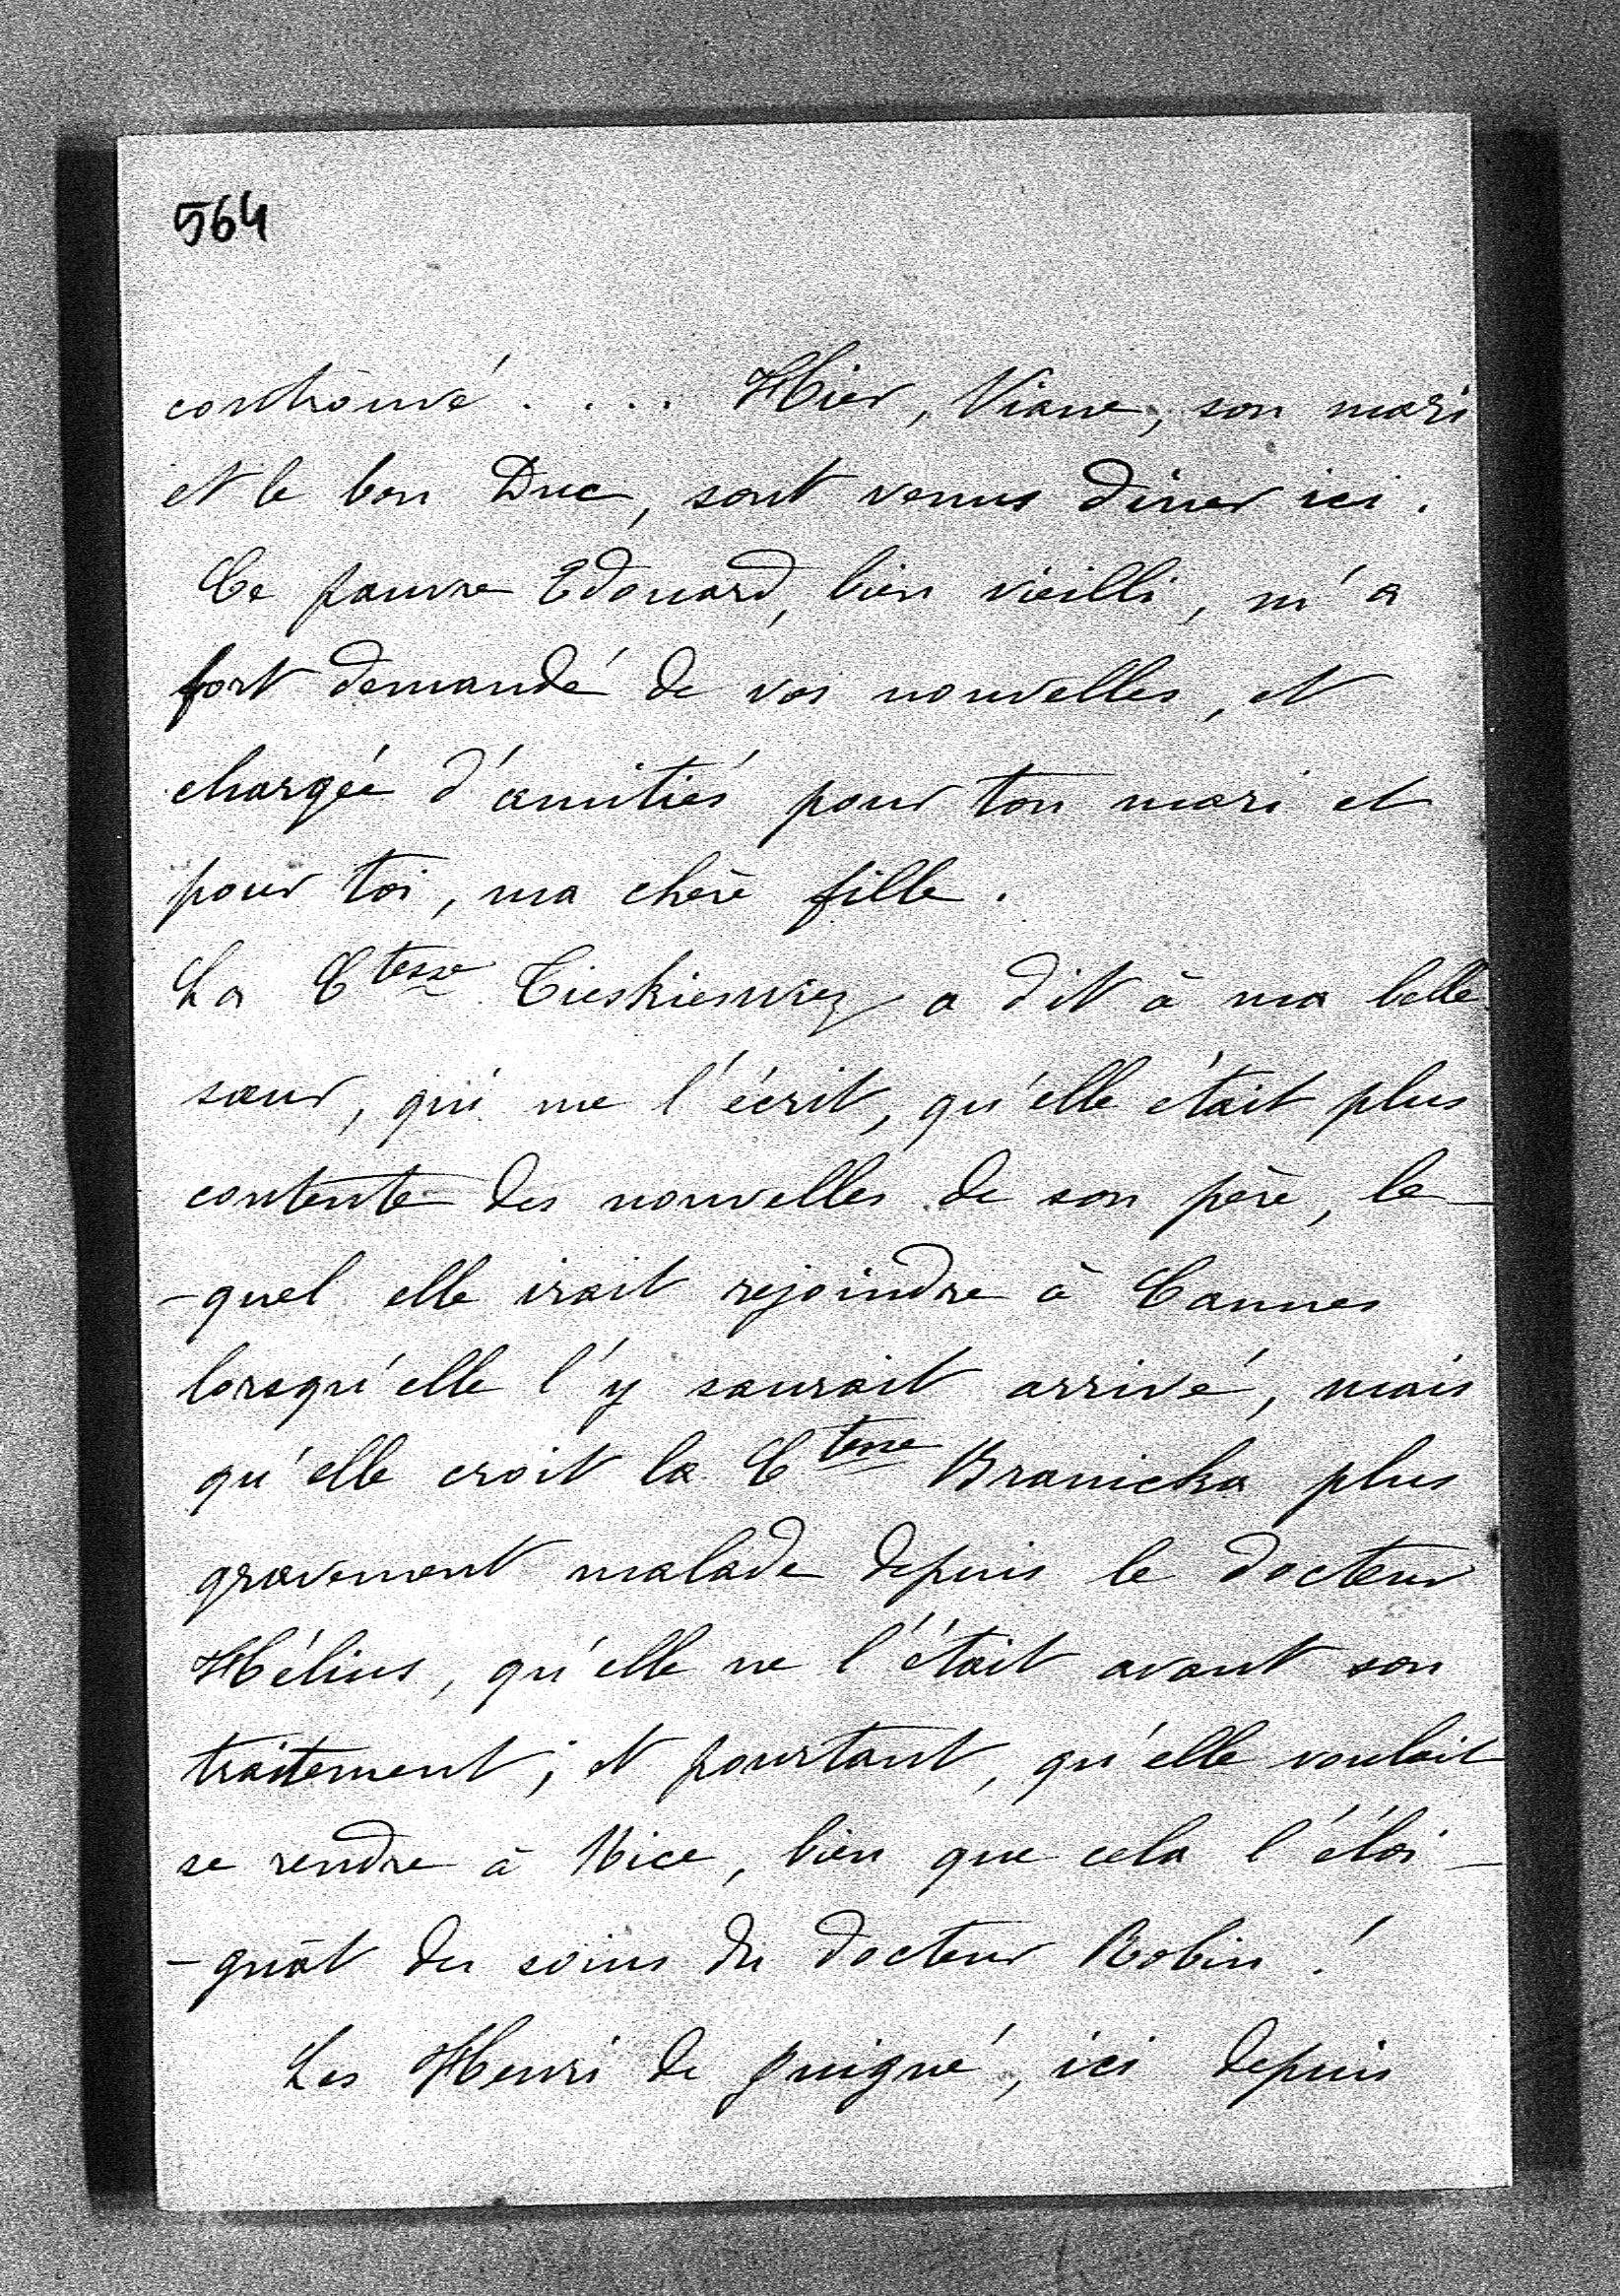 564
controuvé . . . . Hier, Viane, son mari
et le bon Duc, sont venus dîner ici.
Ce pauvre Edouard, bien vieilli, m'a
fort demandé de vos nouvelles, et
chargée d'amitiés pour ton mari et
pour toi, ma chère fille.
La Ctesse Tieskiewiez a dit à ma belle
sœur, qui me l'écrit, qu'elle était plus
contente des nouvelles de son père, le-
-quel elle irait rejoindre à Cannes
lorsqu'elle l'y saurait arrivé, mais
qu'elle croit la Ctesse Branicka plus
gravement malade depuis le docteur
Hélius, qu'elle ne l'était avant son
traitement; et pourtant, qu'elle voulait
se rendre à Nice, bien que cela l'éloi-
-gnât des soins du docteur Robin!
Les Henri de Juigné, ici depuis